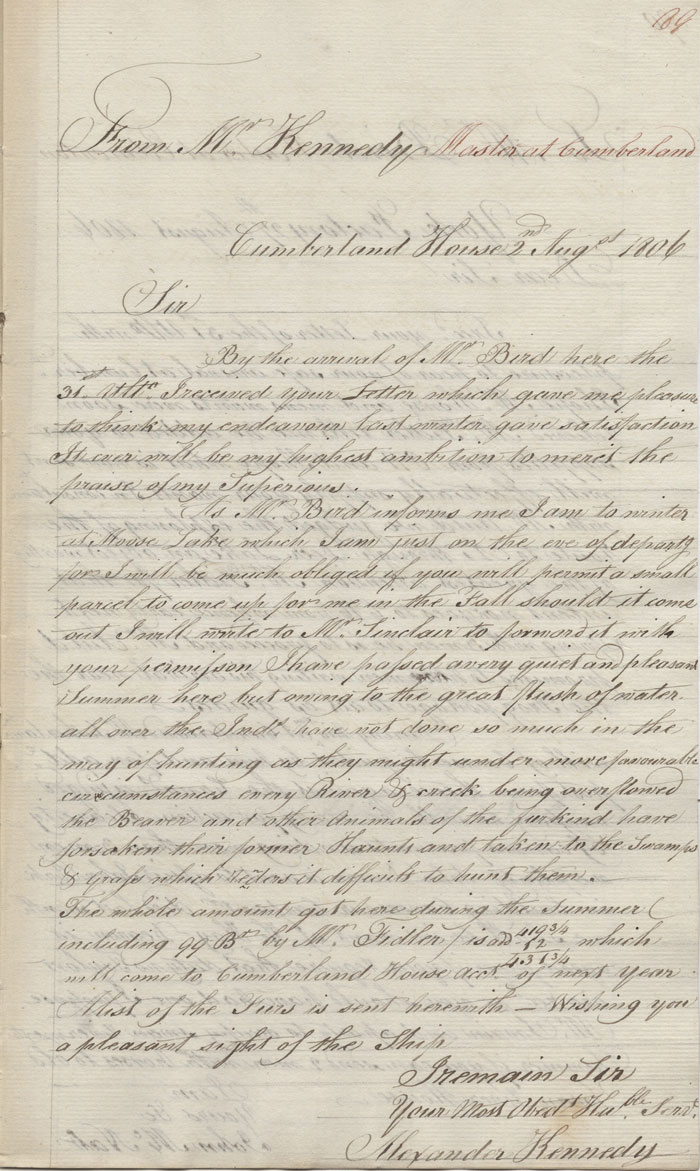 189
From Mr Kennedy Master at Cumberland
Cumberland House 2nd Augst 1806
Sir
By the arrival of Mr Bird here the
31st Ulto. I received your Letter which gave me pleasure
to think my endeavour last winter gave satisfaction
It ever will be my highest ambition to meret the
praise of my Superious.
As Mr Bird informs me I am to winter
at Moose Lake which I am just on the eve of departg
for I will be much obliged if you will permit a small
parcel to come up for me in the Fall should it come
out I will write to Mr Sinclair to forward it with
your permisson I have passed a very quiet and pleasant
Summer here but owing to the great flush of water
all over the Inds. have not done so much in the
way of hunting as they might under more favourable
circumstances every River & creek being overflowed
the Beaver and other Animals of the fur kind have
forsaken their former Haunts and taken to the Swamps
& Grass which renders it difficult to hunt them.
The whole amount got here during the Summer (
including 99 Br by Mr Fidler) is add 419 3/4
12
431 3/4 which
will come to Cumberland House Acct. of next year
A list of the Furs is sent herewith — Wishing you
a pleasant sight of the Ship
I remain Sir
Your Most Obedt Hu.ble Servt.
Alexander Kennedy